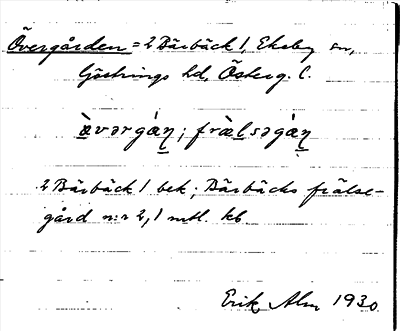 Övergården = 2 Bärbäck 1, Ekeby sn,
Göstrings hd, Österg. l.
ɑ̀vərgán; fràlsəgán
2 Bärbäck 1 bek; Bärbäcks frälse-
gård n:r 2, 1 mtl. kb.
Erik Alm 1930